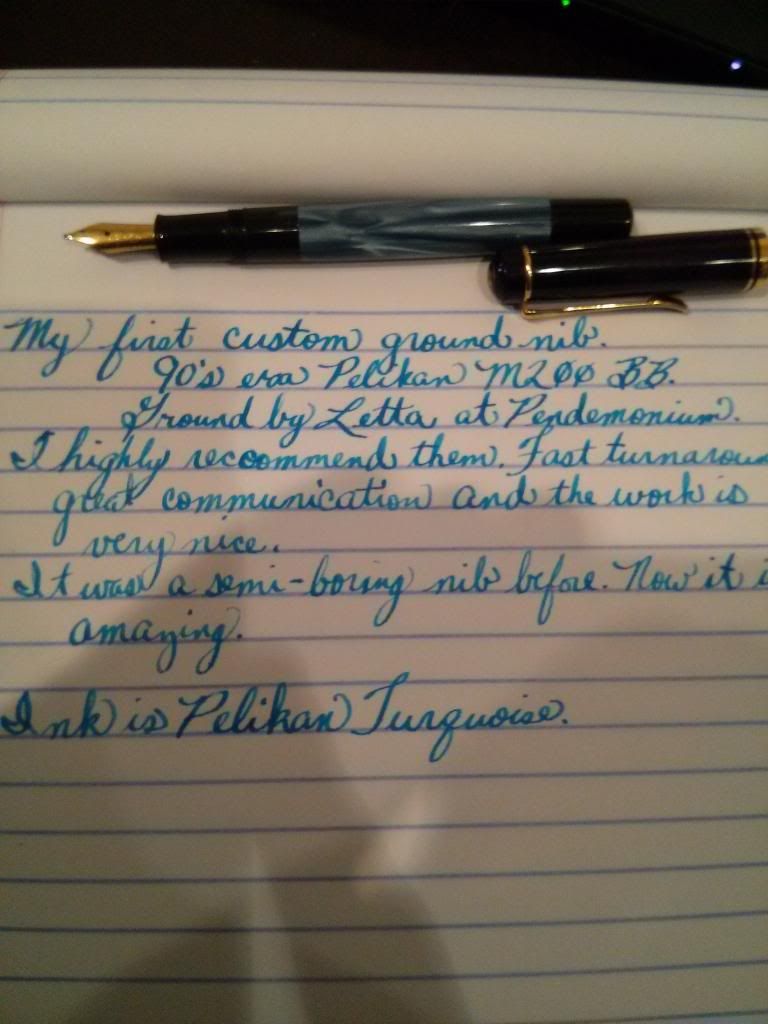 My first custom ground nib.
90's era Pelikan M200 BB.
Ground by Letta at Pendemonium.
I highly recommend them. Fast turnaroun
great communication and the work is
very nice.
It was a semi-boring nib before. Now it i
amazing.
Ink is Pelikan Turquoise.